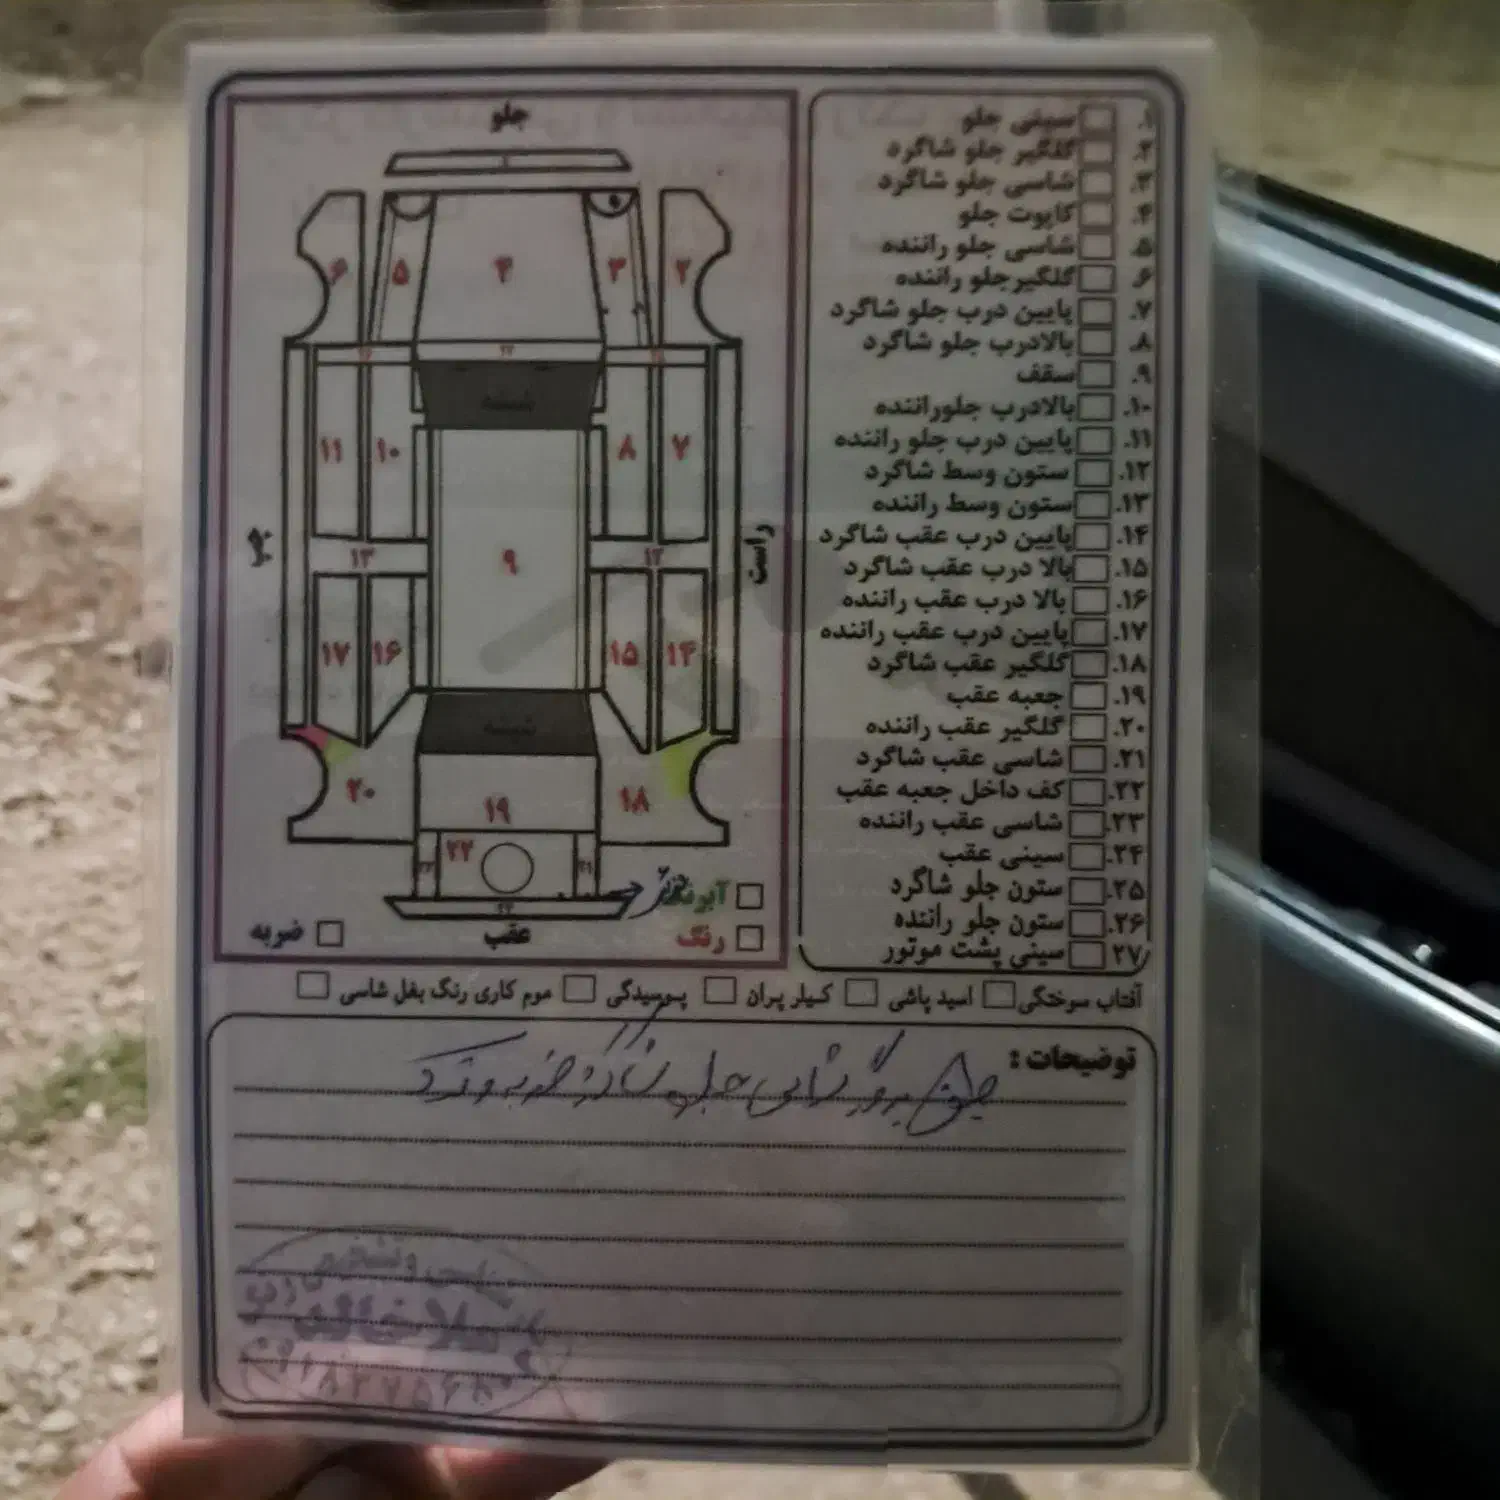 جلو
۶ ۵ ۴ ۳ ۲
۱۱ ۱۰ ۸ ۷
چپ
راست
۱۳ ۹ ۱۲
۱۷ ۱۶ ۱۵ ۱۴
شیشه
شیشه
۲۰ ۱۹ ۱۸
۲۲
آبرنگ
رنگ
ضربه
عقب
۱. سینی جلو
۲. گلگیر جلو شاگرد
۳. شاسی جلو شاگرد
۴. کاپوت جلو
۵. شاسی جلو راننده
۶. گلگیرجلو راننده
۷. پایین درب جلو شاگرد
۸. بالادرب جلو شاگرد
۹. سقف
۱۰. بالادرب جلوراننده
۱۱. پایین درب جلو راننده
۱۲. ستون وسط شاگرد
۱۳. ستون وسط راننده
۱۴. پایین درب عقب شاگرد
۱۵. بالا درب عقب شاگرد
۱۶. بالا درب عقب راننده
۱۷. پایین درب عقب راننده
۱۸. گلگیر عقب شاگرد
۱۹. جعبه عقب
۲۰. گلگیر عقب راننده
۲۱. شاسی عقب شاگرد
۲۲. کف داخل جعبه عقب
۲۳. شاسی عقب راننده
۲۴. سینی عقب
۲۵. ستون جلو شاگرد
۲۶. ستون جلو راننده
۲۷. سینی پشت موتور
آفتاب سرختگی اسید پاشی کیلر پران پوسیدگی موم کاری رنگ بغل شاسی
توضیحات :
جلو شاگرد ضربه و ترک